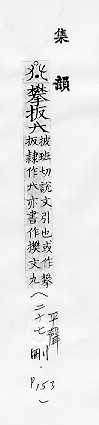 集韻
攀扳
披班切說文引也或作攀
扳隸作亦書作文九
(二十七刪. P.153)
平聲